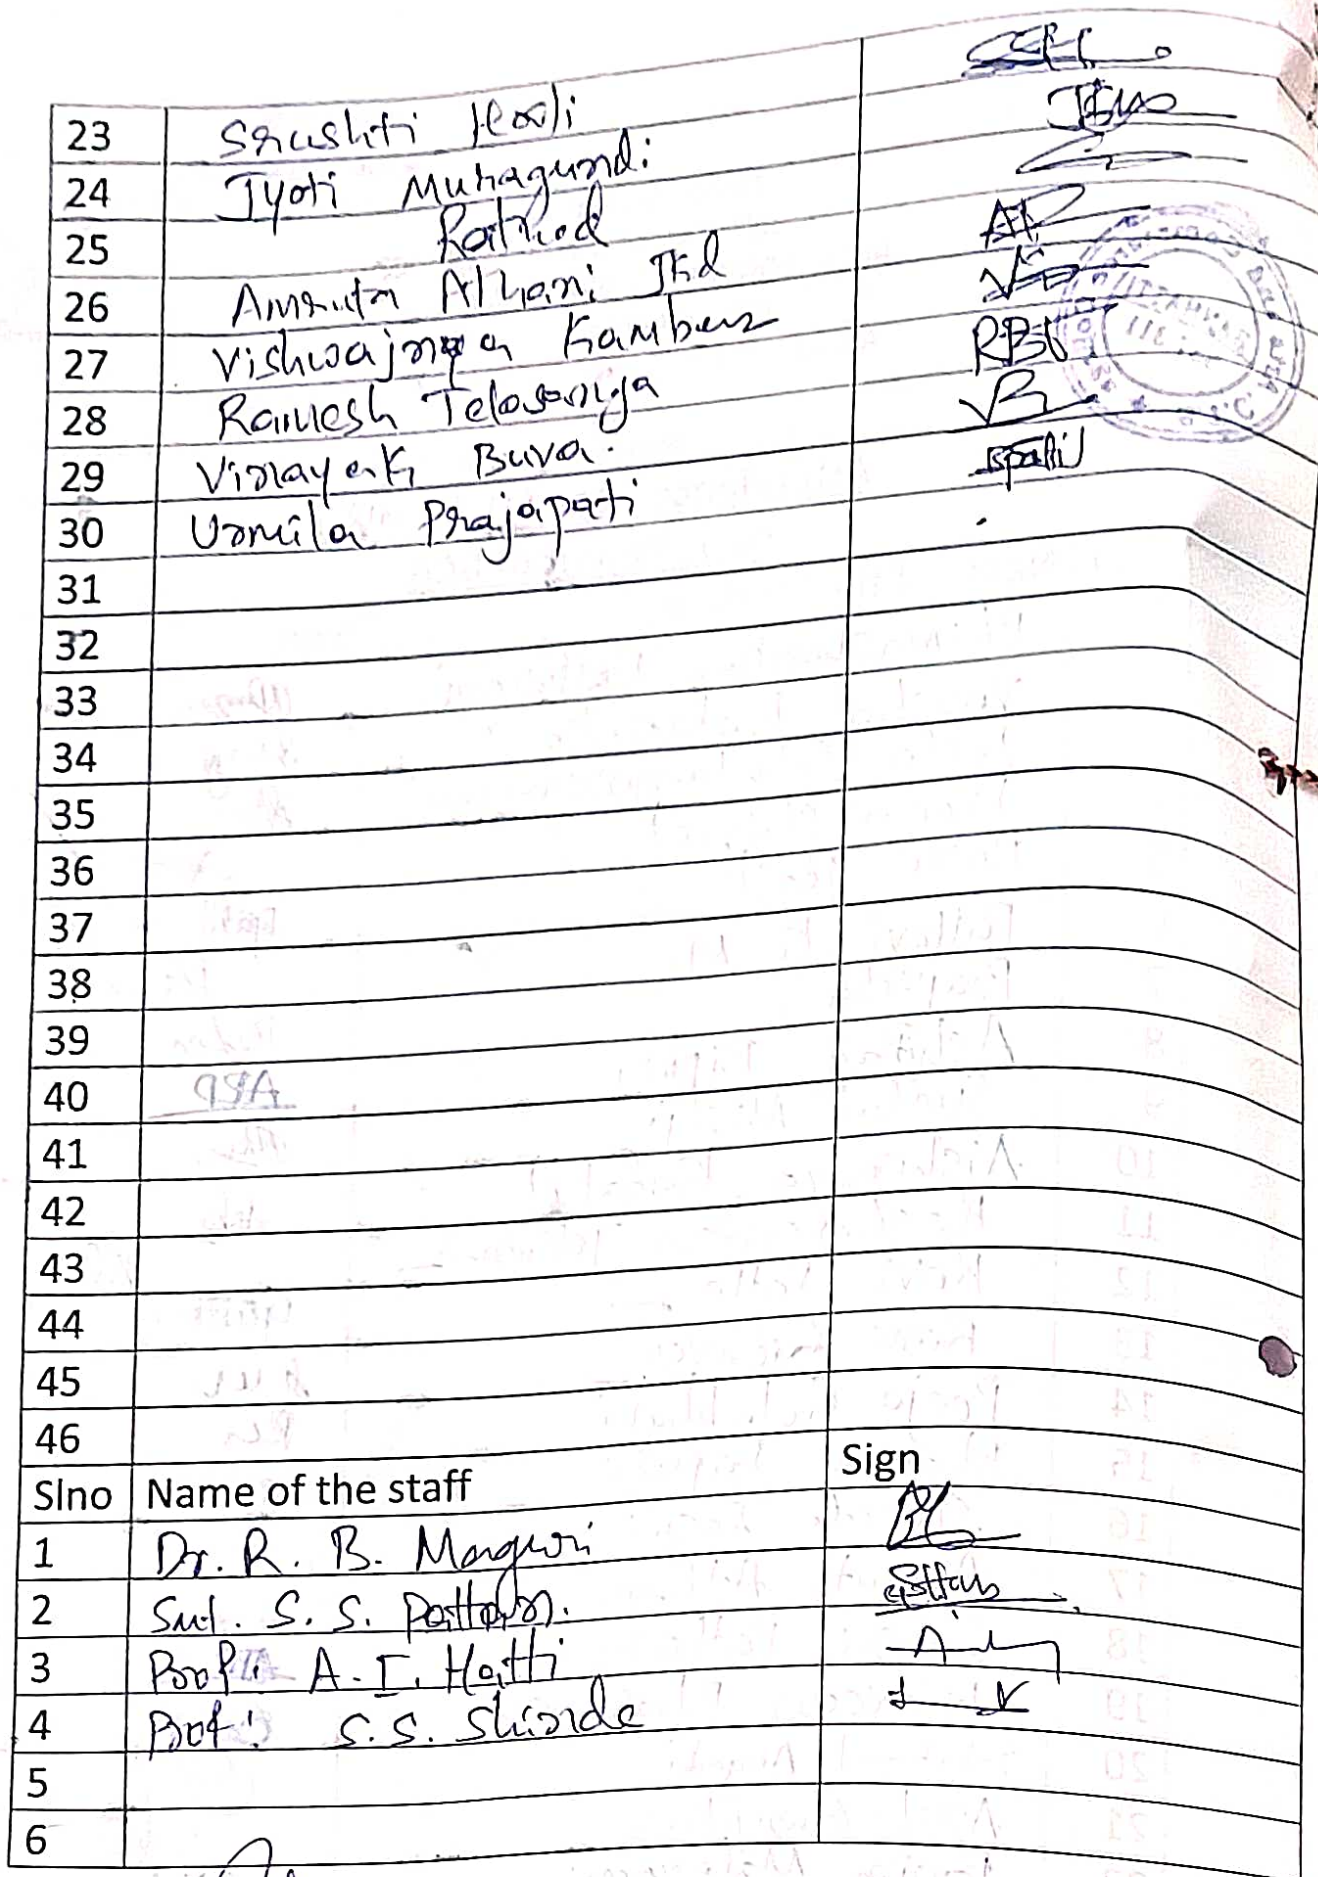 23 Srushti Hooli
24 Jyoti Muragundi
25 Rathod
26 Amruta Alhani Jkd
27 Vishwajnya Kambar
28 Ramesh Telasanga RBT
29 Vinayak Buva.
30 Urmila Prajapati Bpatil
31
32
33
34
35
36
37
38
39
40
41
42
43
44
45
46
Slno Name of the staff Sign
1 Dr. R. B. Magavi
2 Smt. S. S. Pattan.
3 Prof. A. I. Hatti
4 Prof: S. S. Shinde
5
6